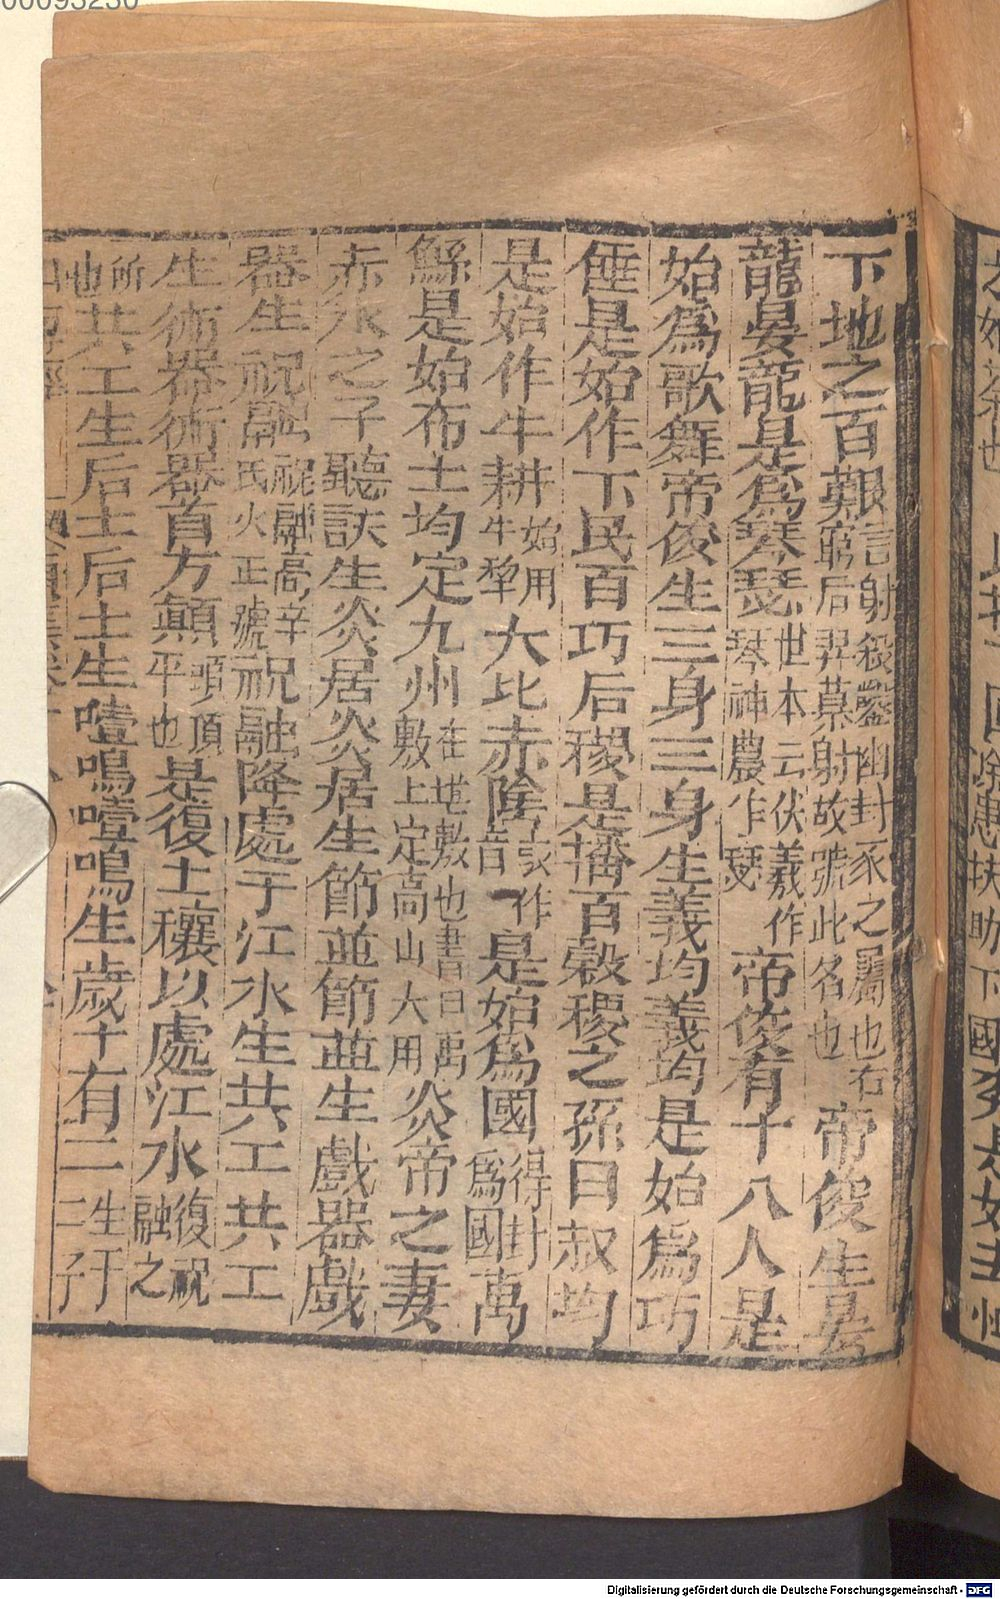 00093230
下地之百艱言射殺鑿幽封豕之屬也右窮后羿慕射故號此名也帝俊生晏
龍晏龍是爲琴瑟世本云伏羲作琴神農乍瑟帝俊有十八人是
始爲歌舞帝俊生三身三身生義均義均是始爲巧
倕是始作下民百巧后稷是播百穀稷之孫曰叔均
是始作牛耕始用牛犂大比赤陰或作音是始爲國得封爲國禹
鯀是始布土均定九州在堪敷也書曰禹敷上定高山大用炎帝之妻
赤水之子聽訞生炎居炎居生節並節並生戲器戲
器生祝融祝融高辛氏火正號祝融降處于江水生共工共工
生術器術器首方顛頭頂平也是復土穰以處江水復祝融之
所也共工生后土后土生噎鳴噎鳴生歲十有二生于二子
Digitalisierung gefördert durch die Deutsche Forschungsgemeinschaft - DFG